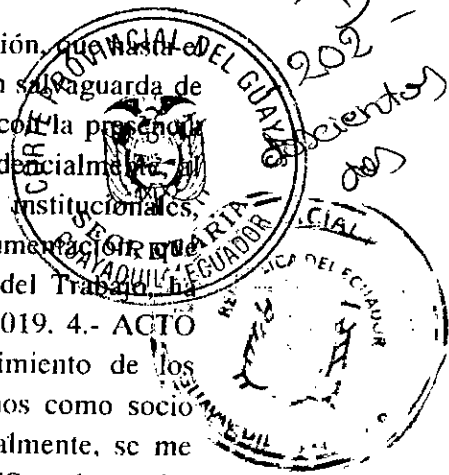 ción, que hasta el
n salvaguarda de
con la presencia
dencialmente, al
institucionales,
umentación, que
del Trabajo, ha
019. 4.- ACTO
imiento de los
nos como socio
almente, se me
CORTE PROVINCIAL DEL GUAYAS
SECRETARIA
GUAYAQUIL - ECUADOR
202 -
Doscientos
dos
REPUBLICA DEL ECUADOR